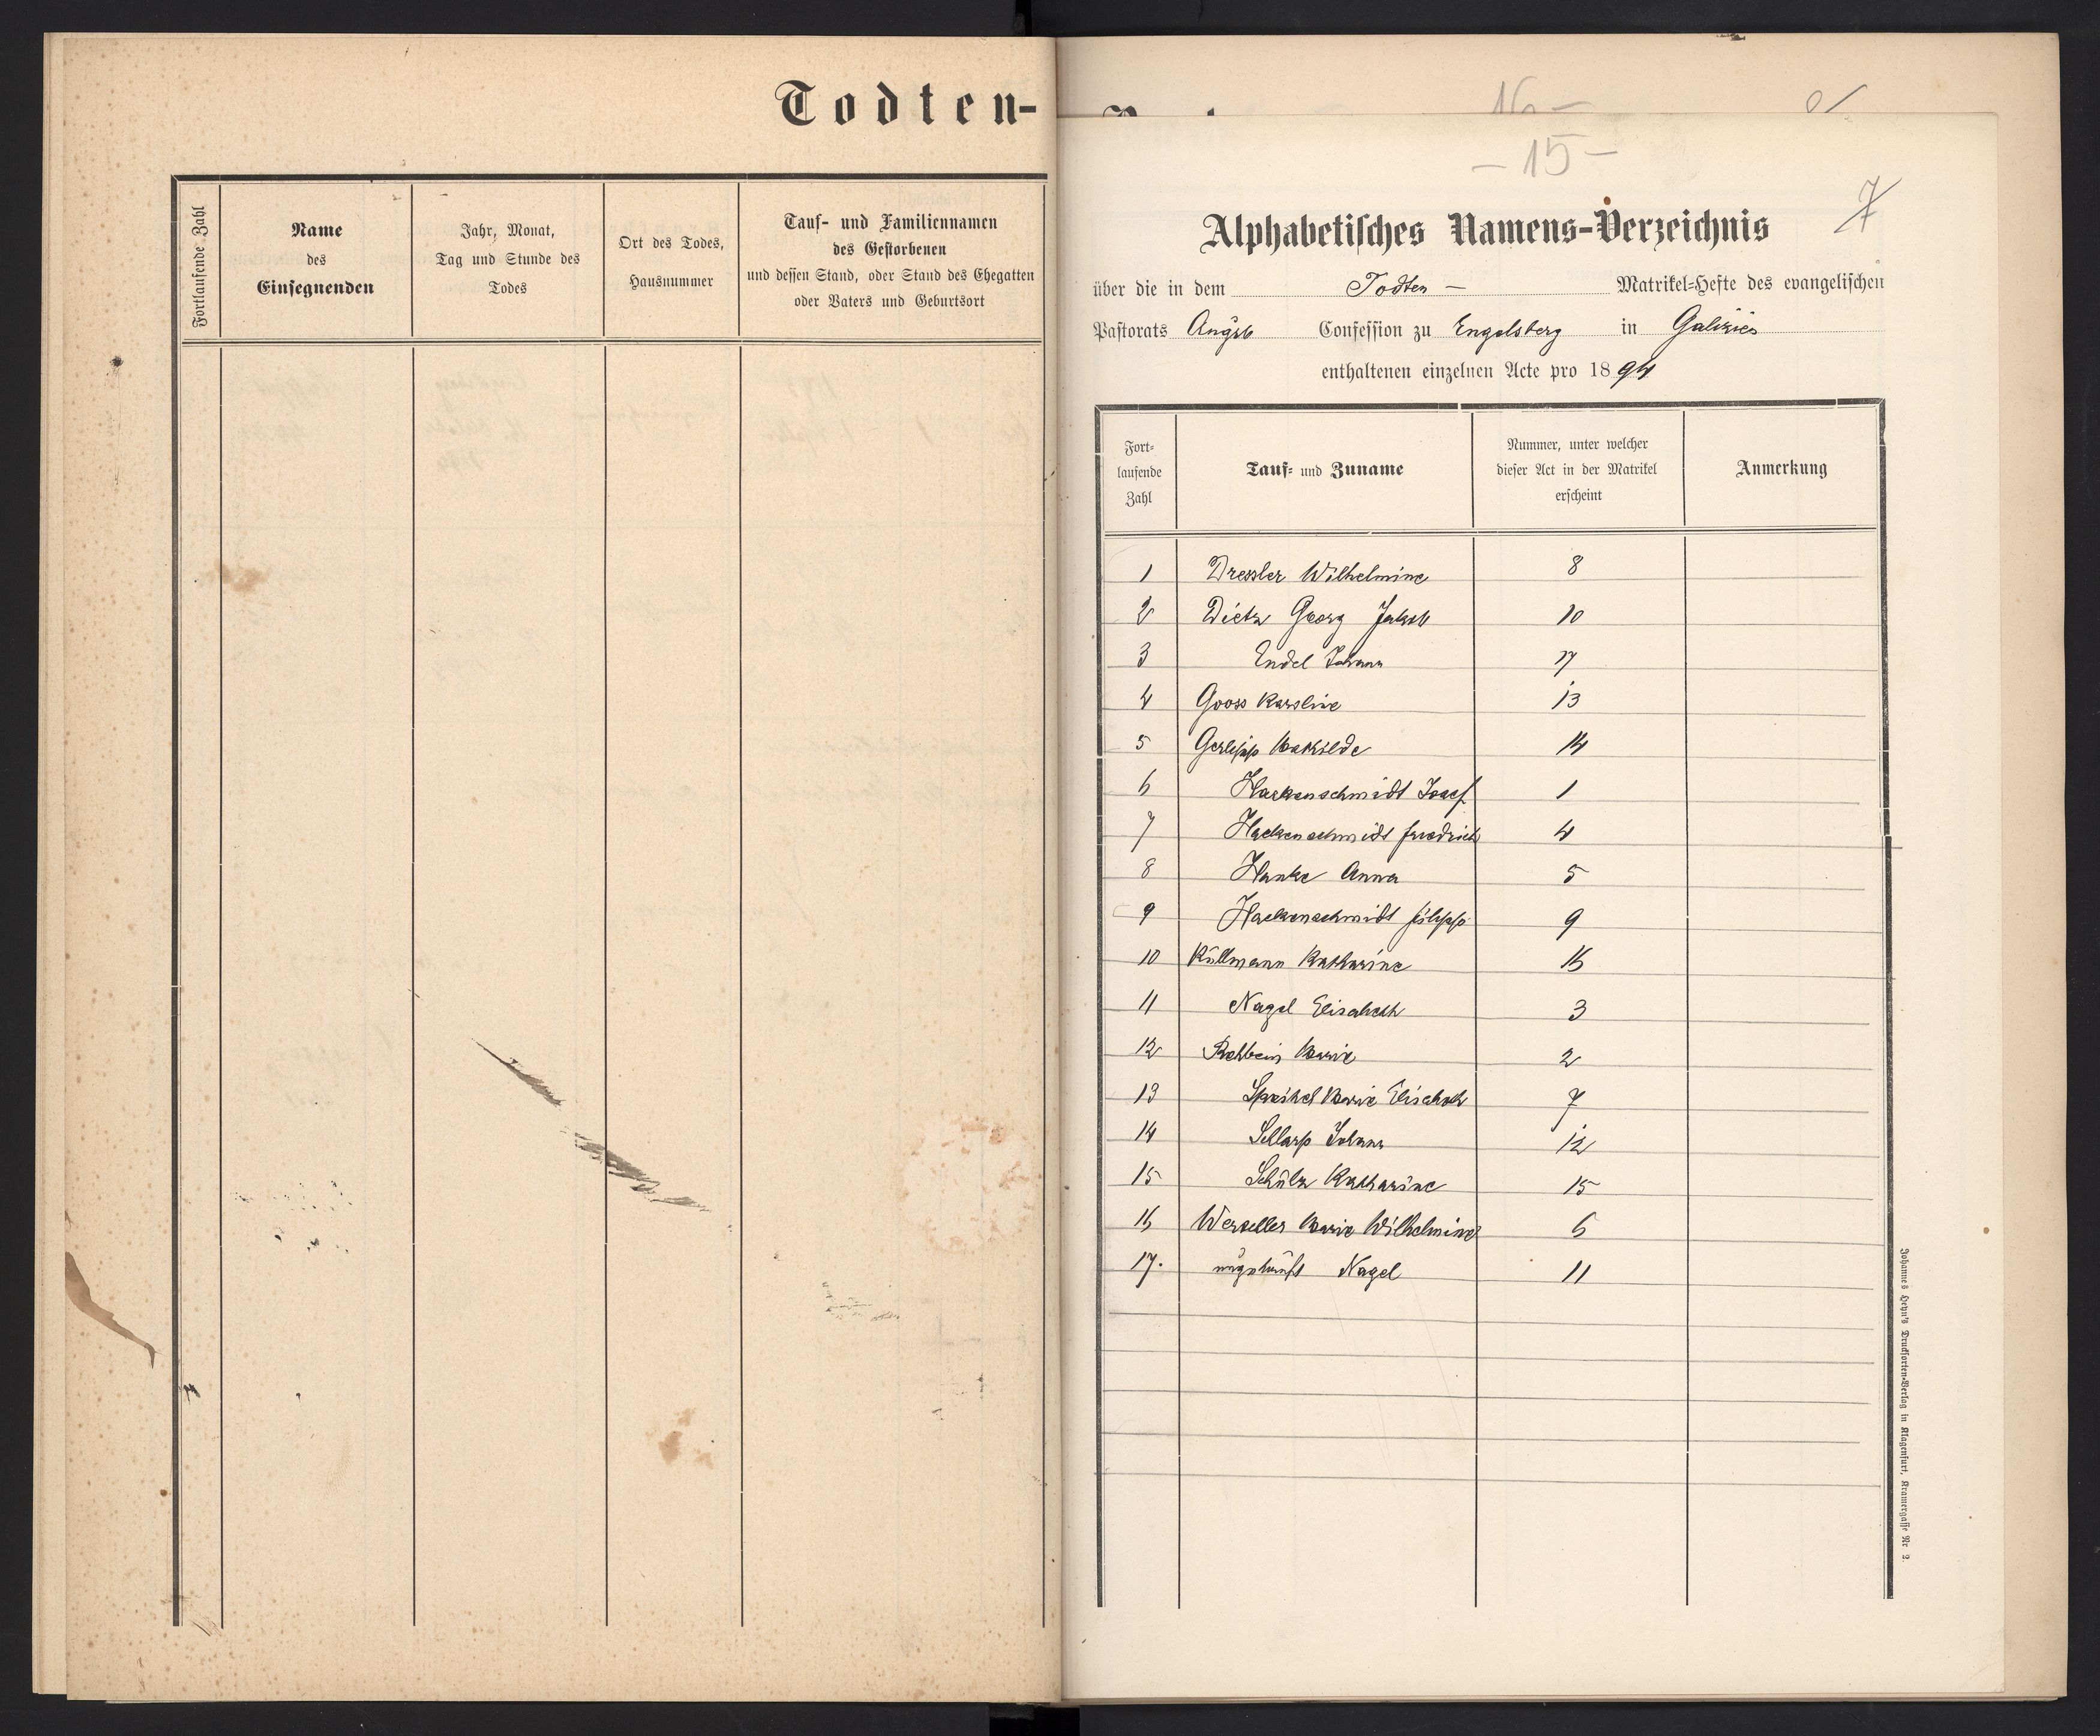 Todten-
Fortlaufende Zahl
Name
des
Einsegnenden
Jahr, Monat,
Tag und Stunde des
Todes
Ort des Todes,
Hausnummer
Tauf- und Familiennamen
des Gestorbenen
und dessen Stand, oder Stand des Ehegatten
oder Vaters und Geburtsort
16 -
- 15 -
7
Alphabetisches Namens-Verzeichnis
über die in dem Todten - Matrikel-Hefte des evangelischen
Pastorats Augsb Confession zu Engelsberg in Galizien
enthaltenen einzelnen Acte pro 1894
Fort-
laufende
Zahl
Tauf- und Zuname
Nummer, unter welcher
dieser Act in der Matrikel
erscheint
Anmerkung
1 Dressler Wilhelmine 8
2 Dietz Georg Jakob 10
3 Endel Johann 17
4 Gooss Karoline 13
5 Gerlipp Mathilde 14
6 Hackenschmidt Josef 1
7 Hackenschmidt Friedrich 4
8 Hanke Anna 5
9 Hackenschmidt Filipp 9
10 Küllmann Katharine 16
11 Nagel Elisabeth 3
12 Rehbein Marie 2
13 Marie Elisabeth 7
14 Schlarp Johann 12
15 Schülz Katharine 15
16 Marie Wilhelmine 6
17. ungetauft Nagel 11
Johannes Heyn's Drucksorten-Verlag in Klagenfurt, Kramergasse Nr 2.